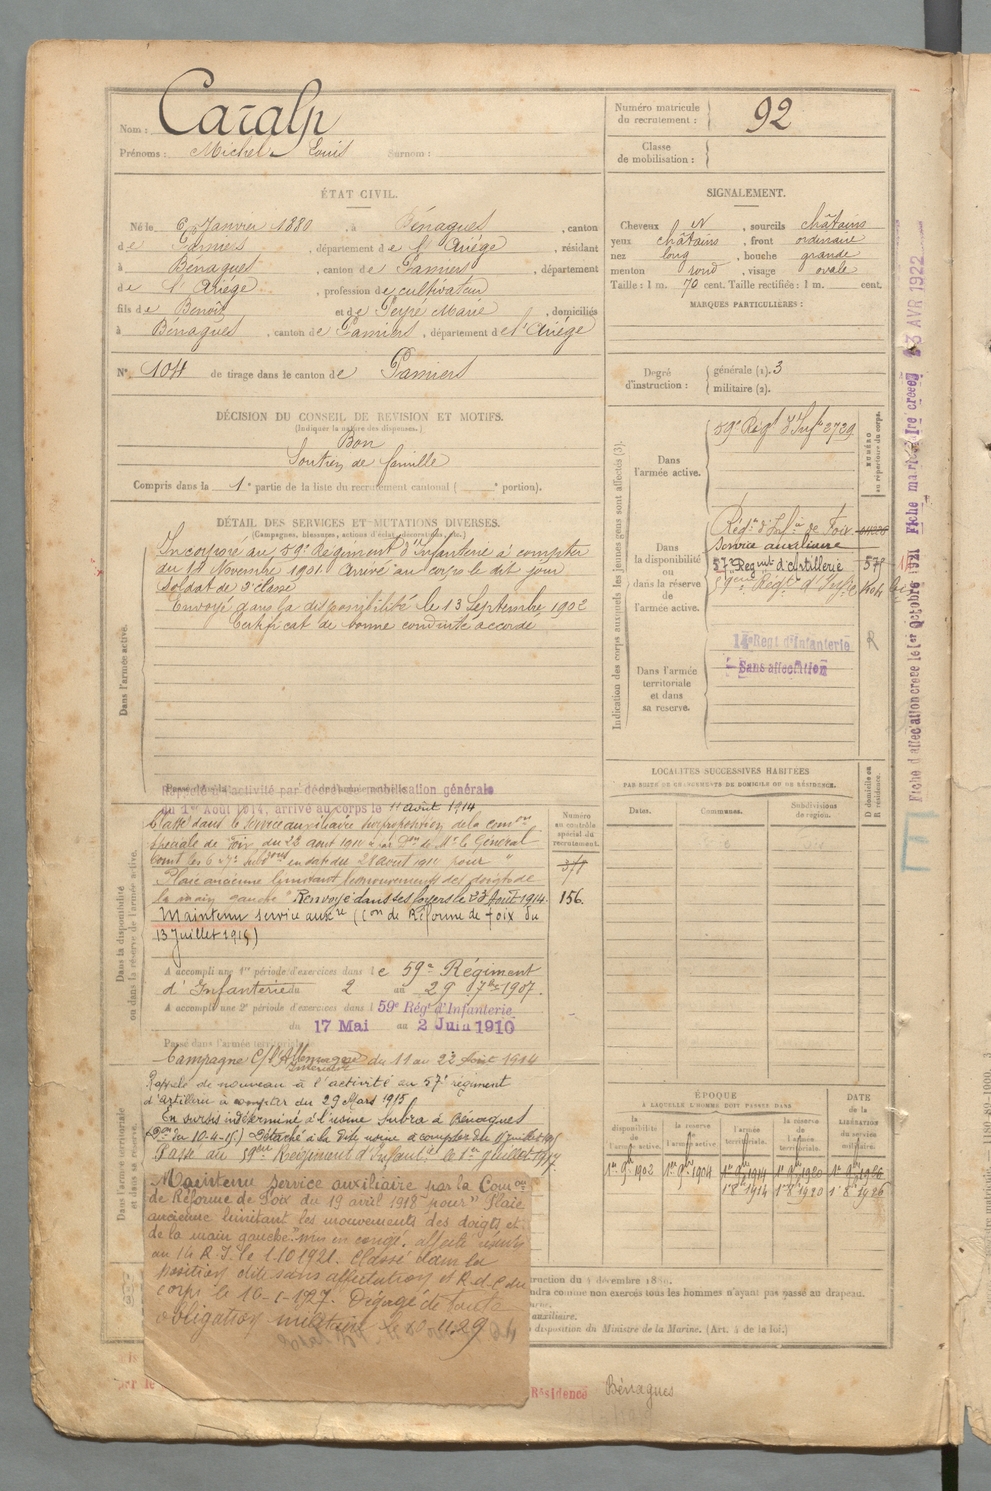 Nom : Caralp
Prénoms : Michel Louis Surnom :
Numéro matricule du recrutement : 92
Classe de mobilisation :
ÉTAT CIVIL.
Né le 6 Janvier 1880, à Bénagues, canton
de Pamiers, département de l'Ariége, résidant
à Bénagues, canton de Pamiers, département
de l'Ariége, profession de cultivateur
fils de Benoît et de Peyré Marie, domiciliés
à Bénagues, canton de Pamiers, département de l'Ariége
N° 104 de tirage dans le canton de Pamiers
DÉCISION DU CONSEIL DE REVISION ET MOTIFS.
(Indiquer la nature des dispenses.)
Bon
Soutien de famille
Compris dans la 1e partie de la liste du recrutement cantonal ( e portion).
SIGNALEMENT.
Cheveux N, sourcils châtains
yeux châtains, front ordinaire
nez long, bouche grande
menton rond, visage ovale
Taille : 1 m. 70 cent. Taille rectifiée : 1 m. cent.
MARQUES PARTICULIÈRES :
Degré d'instruction : générale (1). 3
militaire (2).
DÉTAIL DES SERVICES ET MUTATIONS DIVERSES.
(Campagnes, blessures, actions d'éclat, décorations, etc.)
Dans l'armée active.
Incorporé au 59e Régiment d'Infanterie à compter
du 14 Novembre 1901. Arrivé au corps le dit jour
soldat de 2e classe
Envoyé dans la disponibilité le 13 Septembre 1902
Certificat de bonne conduite accordé
Indication des corps auxquels les jeunes gens sont affectés (3).
NUMÉRO au répertoire du corps.
Dans l'armée active.
59e Régt d'Infie 2729
Dans la disponibilité ou dans la réserve de l'armée active.
Régt d'Infie de Foix
Service auxiliaire
57e Regmt d'artillerie 579
Dans l'armée territoriale et dans sa reserve.
14e Regt d'Infanterie
Sans affectation
R
Fiche d'affectation créée le 1er Octobre 1921 Fiche matriculaire créée 23 AVR 1922
Dans la disponibilité ou dans la réserve de l'armée active.
Rappelé à l'activité par décret de mobilisation générale
du 1er Août 1914, arrivé au corps le 11 août 1914
Classé dans le service auxiliaire sur proposition de la comon
spéciale de Foix du 23 aout 1910 Don de Mr le Général
28 août 1910 pour "
Plaie ancienne limitant les mouvements des doigts de
la main gauche" Renvoyé dans ses foyers le 23 Août 1914.
Maintenu service auxre (Con de Réforme de Foix du
13 Juillet 1916)
Numéro au contrôle spécial du recrutement.
378
156.
A accompli une 1re période d'exercices dans le 59e Régiment
d'Infanterie du 2 au 29 7bre 1907.
A accompli une 2e période d'exercices dans l 59e Régt d'Infanterie
du 17 Mai au 2 Juin 1910
Passé dans l'armée territoriale
Campagne C/ l'Allemagne du 11 au 23 Août 1914
Intérieur
Dans l'armée territoriale et dans sa réserve.
Rappelé de nouveau à l'activité au 57e régiment
d'artillerie à compter du 29 Mars 1915
En sursis indéterminé à l'usine Subra à Bénagues
Détaché à la dite usine à compter du
Passé au 59eme Régiment d'Infanie le 1er Juillet 1917
Maintenu service auxiliaire par la Comon
de Réforme de Foix du 19 avril 1918 pour "Plaie
ancienne limitant les mouvements des doigts et
de la main gauche". mis en congé. affecté réserve
au 14 R.I. le 1.10 1921. Classé dans la
position dite sans affectation et R.d.C du
corps le 16-1-1927. Dégagé de toute
obligation militaire
LOCALITÉS SUCCESSIVES HABITÉES
PAR SUITE DE CHANGEMENTS DE DOMICILE OU DE RÉSIDENCE.
Dates. Communes. Subdivisions de region. D domicile ou R résidence.
ÉPOQUE À LAQUELLE L'HOMME DOIT PASSER DANS
DATE de la LIBÉRATION du service militaire.
la disponibilité de l'armée active. la réserve de l'armée active. l'armée territoriale. la réserve de l'armée territoriale.
1er 9bre 1902 1er 9bre 1904 1er 9bre 1914 1er 9bre 1920 1er 9bre 1926
1er 8bre 1914 1er 8bre 1920 1er 8bre 1926
endra comme non exercés tous les hommes n'ayant pas passé au drapeau.
auxiliaire.
disposition du Ministre de la Marine. (Art. 4 de la loi.)
par le
Résidence Bénagues